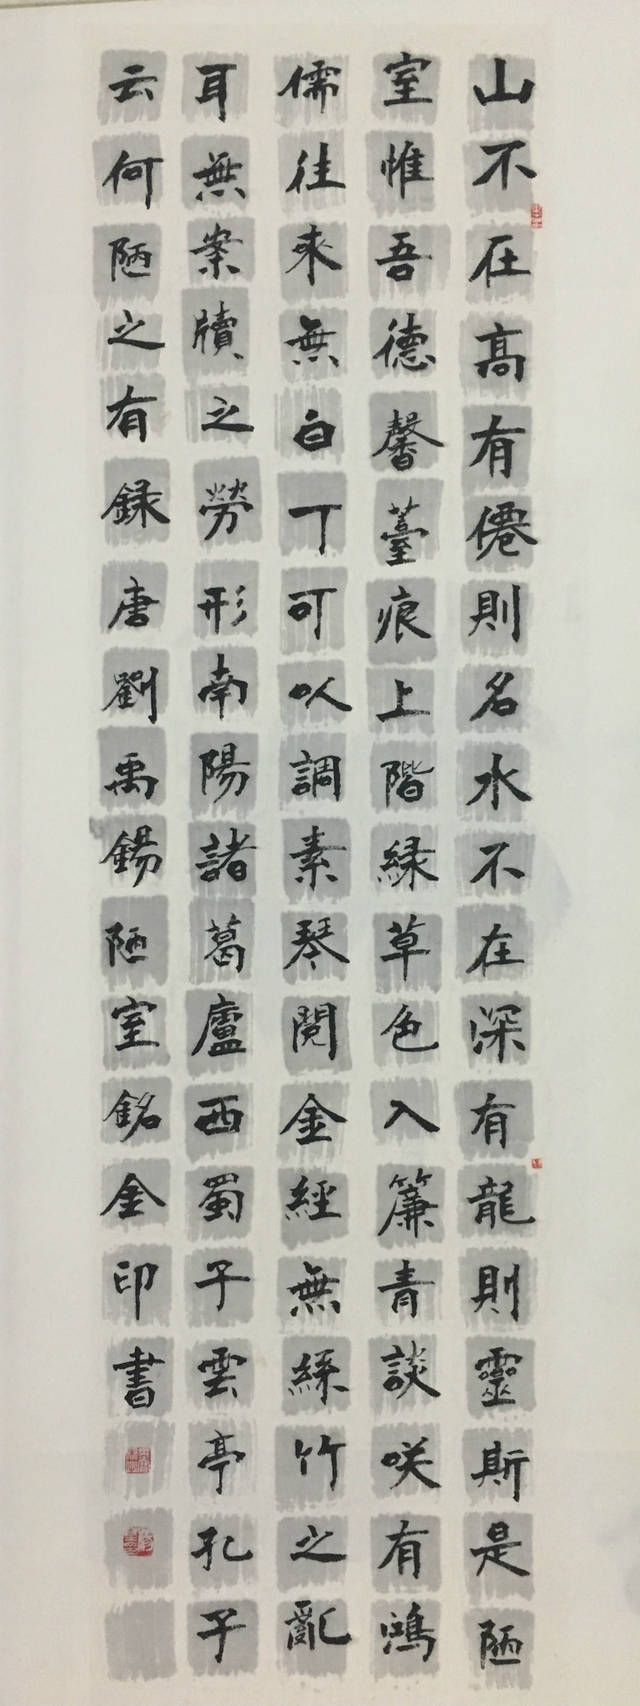 山不在高有僊則名水不在深有龍則靈斯是陋
室惟吾德馨薹痕上階緑草色入簾青談咲有鴻
儒往來無白丁可以調素琴閲金經無絲竹之亂
耳無案牘之勞形南陽諸葛廬西蜀子雲亭孔子
云何陋之有録唐劉禹錫陋室銘金印書